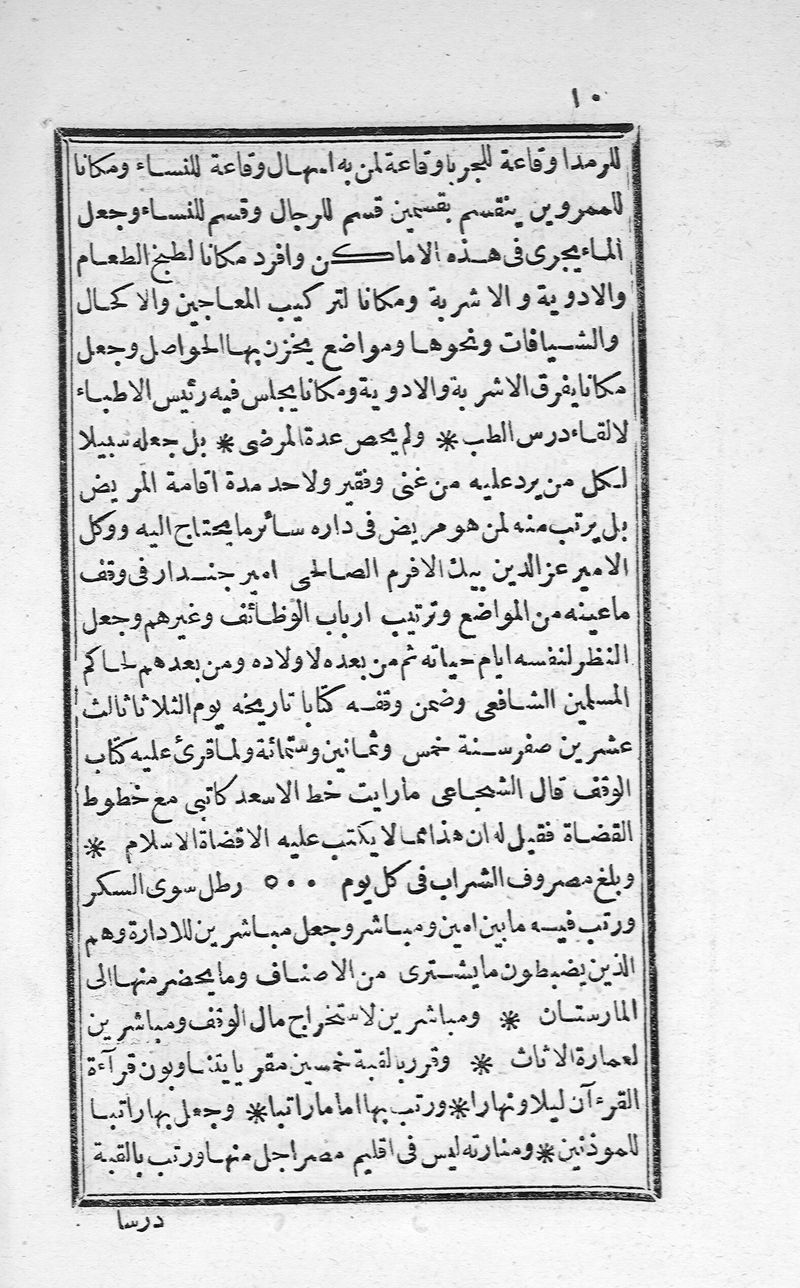 ١٠
للرمدا وقاعة للجربا وقاعة لمن به اسهال وقاعة للنساء ومكانا
للممرورين ينقسم بقسمين قسم للرجال وقسم للنساء وجعل
الماء يجرى فى هذه الاماكن وافرد مكانا لطبخ الطعام
والادوية والاشربة ومكانا لتركيب المعاجين والاكحال
والشيافات ونحوها ومواضع يخزن بها الحواصل وجعل
مكانا يفرق الاشربة والادوية ومكانا يجلس فيه رئيس الاطباء
لالقاء درس الطب * ولم يحص عدة المرضى * بل جعله سبيلا
لكل من يرد عليه من غنى وفقير ولا حد مدة اقامة المريض
بل يرتب منه لمن هو مريض فى داره سائر ما يحتاج اليه ووكل
الامير عز الدين بيك الافرم الصالحى امير جندار فى وقف
ما عينه من المواضع وترتيب ارباب الوظائف وغيرهم وجعل
النظر لنفسه ايام حياته ثم من بعده لاولاده ومن بعدهم لحاكم
المسلمين الشافعى وضمن وقفه كتابا تاريخه يوم الثلاثا ثالث
عشرين صفر سنة خمس وثمانين وستمائة ولما قرئ عليه كتاب
الوقف قال الشجاعى ما رايت خط الاسعد كاتبى مع خطوط
القضاة فقيل له ان هذا مما لا يكتب عليه الا قضاة الاسلام *
وبلغ مصروف الشراب فى كل يوم ٥٠٠ رطل سوى السكر
ورتب فيه ما بين امين ومباشر وجعل مباشرين للادارة وهم
الذين يضبطون ما يشترى من الاصناف وما يحضر منها الى
المارستان * ومباشرين لاستخراج مال الوقف ومباشرين
لعمارة الاثاث * وقرر بالقبة خمسين مقريا يتناوبون قرآءة
القرءآن ليلا ونهارا * ورتب بها اماما راتبا * وجعل بها راتبا
للموذنين * ومنارته ليس فى اقليم مصر اجل منها ورتب بالقبة
درسا